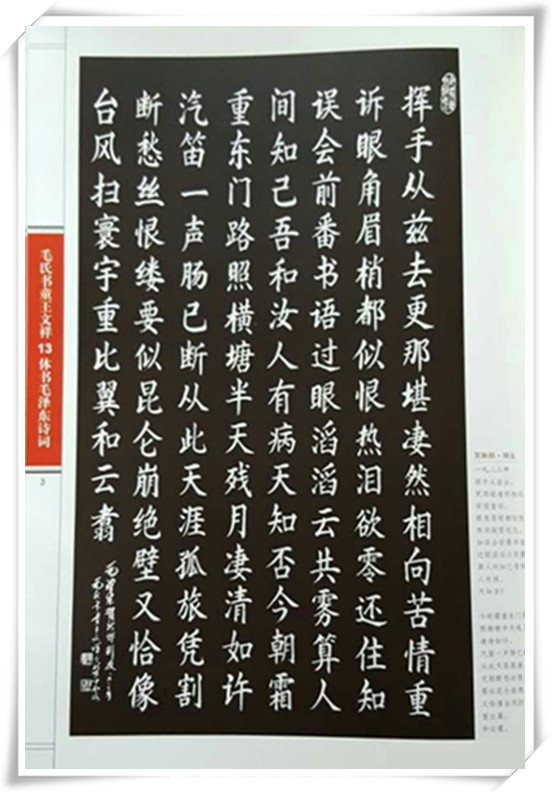 挥手从兹去更那堪凄然相向苦情重
诉眼角眉梢都似恨热泪欲零还住知
误会前番书语过眼滔滔云共雾算人
间知己吾和汝人有病天知否今朝霜
重东门路照横塘半天残月凄清如许
汽笛一声肠已断从此天涯孤旅凭割
断愁丝恨缕要似昆仑崩绝壁又恰像
台风扫寰宇重比翼和云翥
毛氏书童王文祥 13 体书毛泽东诗词
3
贺新郎·别友
一九二三年
挥手从兹去。